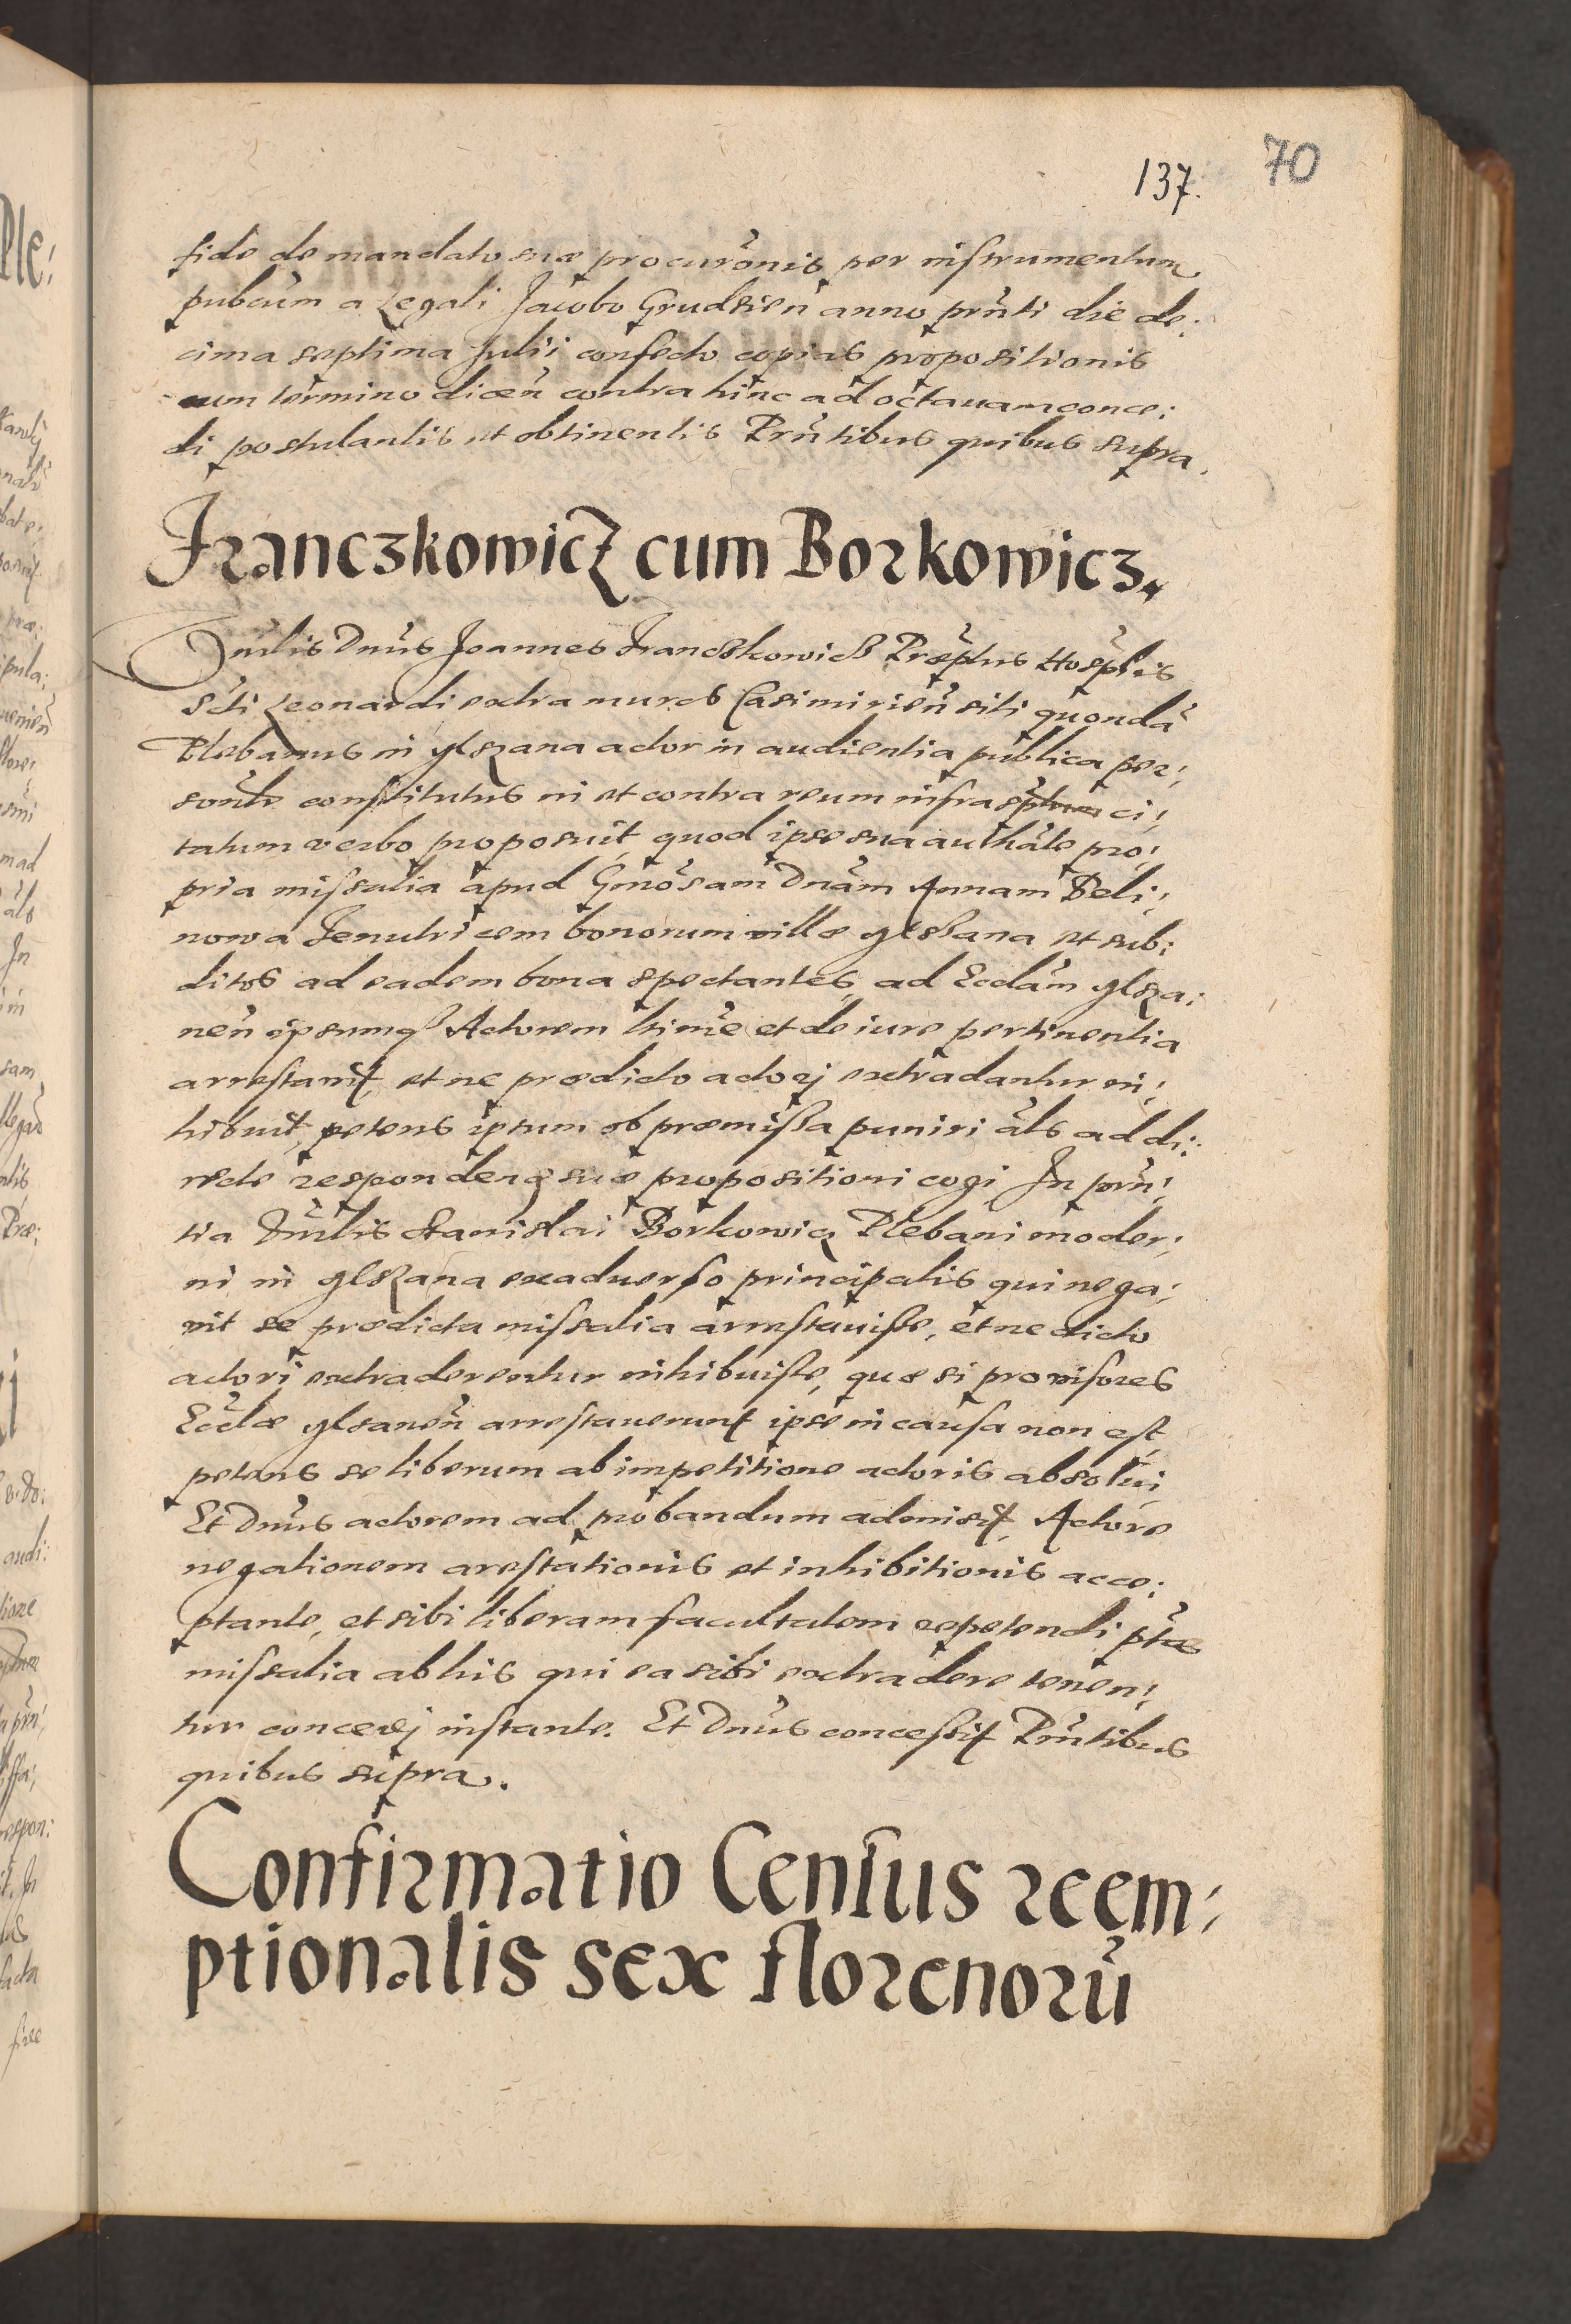 137. 70
fide de mandato suæ procurõnis per instrumentum
pubcũm a Legali Jacobo Grudzień anno prñti die de:
cima septima Julii confecto copias propositionis
cum termino diceñ contra hinc ad octauam conce:
di postulantis et obtinentis Prñtibus quibus supra.
Franczkowicz cum Borkowicz.
Dnus Joannes Franczkowicz Hosplis
Scti Leonardi extra muros Casimirieñ siti quondã
Plebanus in ylzzana actor in audientia publica per:
constitutus in et contra reum infra ci:
tatum verbo proposuit quod ipse sua authãte pro:
pria missalia apud Gnõsam Dnãm Annam Beli:
nowa Tenutricem bonorum villæ ylzzana et sub:
ditos ad eadem bona spectantes, ad Eccłãm ylzza:
neñ ipsumq3 Actorem et de iure pertinentia
arrestauit, et ne prædicto actorj extradantur in:
hibuit, petens ipsum ob præmissa puniri als ad di:
recte respondendum suæ propositioni cogi In prñ:
tia Stanislai Borkowicz Plebani moder:
ni in ylzzana exaduerso principalis qui nega:
uit se prædicta missalia arrestauisse, et ne dicto
actori extraderentur inhibuisse, quæ si prouisores
Ecclæ ylzaneñ arrestauerunt ipse in causa non est
petens se liberum ab impetitione actoris absolui
Et Dnus actorem ad probandum admisit, Actore
negationem arestationis et inhibitionis acce:
ptante, et sibi liberam facultatem repetendi
missalia ab his qui ea sibi extradere tenen:
tur concedj instante. Et Dnus concessit Prñtibus
quibus supra.
Confirmatio Census reem:
ptionalis sex florenorũ